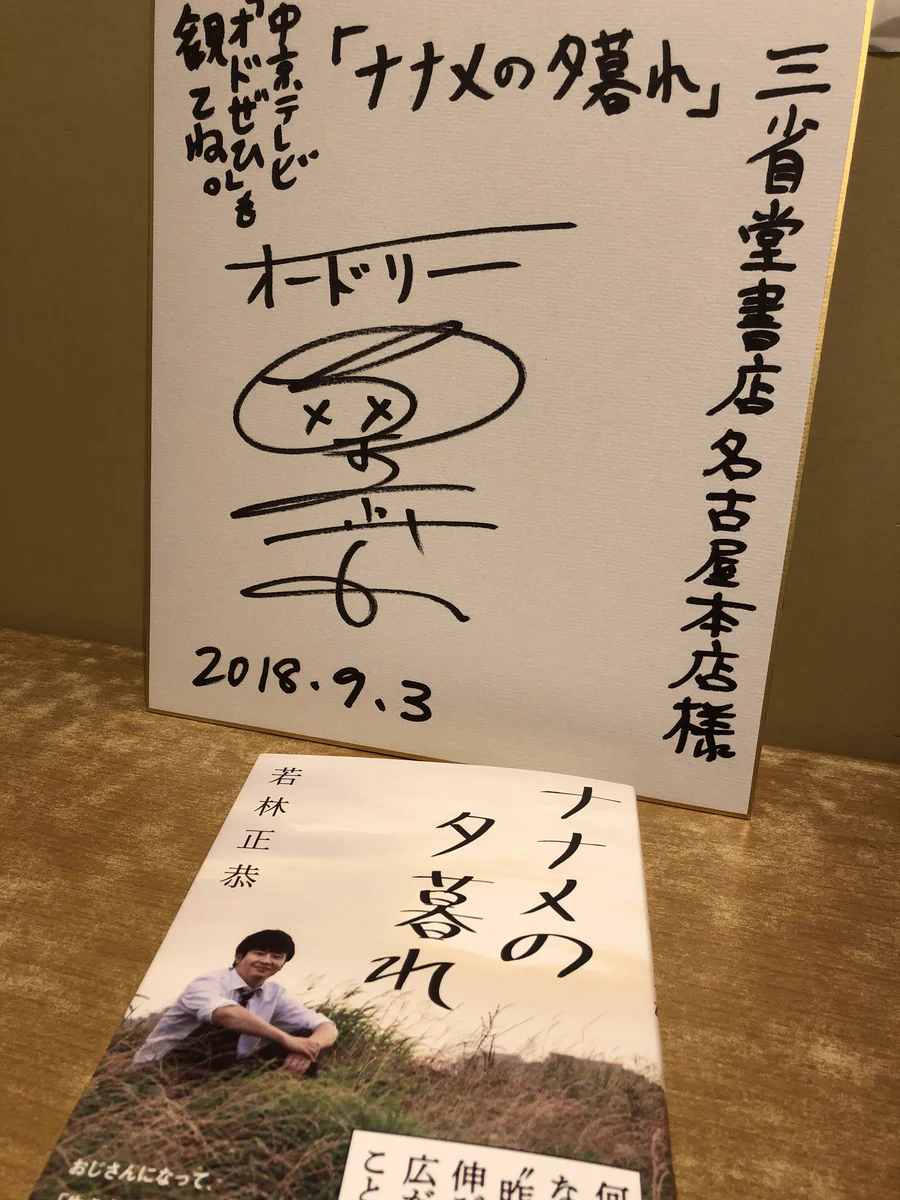 三省堂書店 名古屋本店様
「ナナメの夕暮れ」
中京テレビ
「オドぜひ」も
観てね。
オードリー
2018.9.3
ナナメの
夕暮れ
若林正恭
おじさんになって、